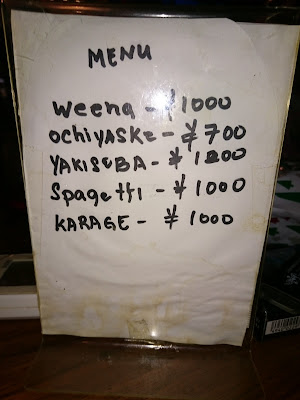 MENU
weena - ¥1000
ochiyaske - ¥700
YAKISOBA - ¥1200
Spagetti - ¥1000
KARAGE - ¥1000